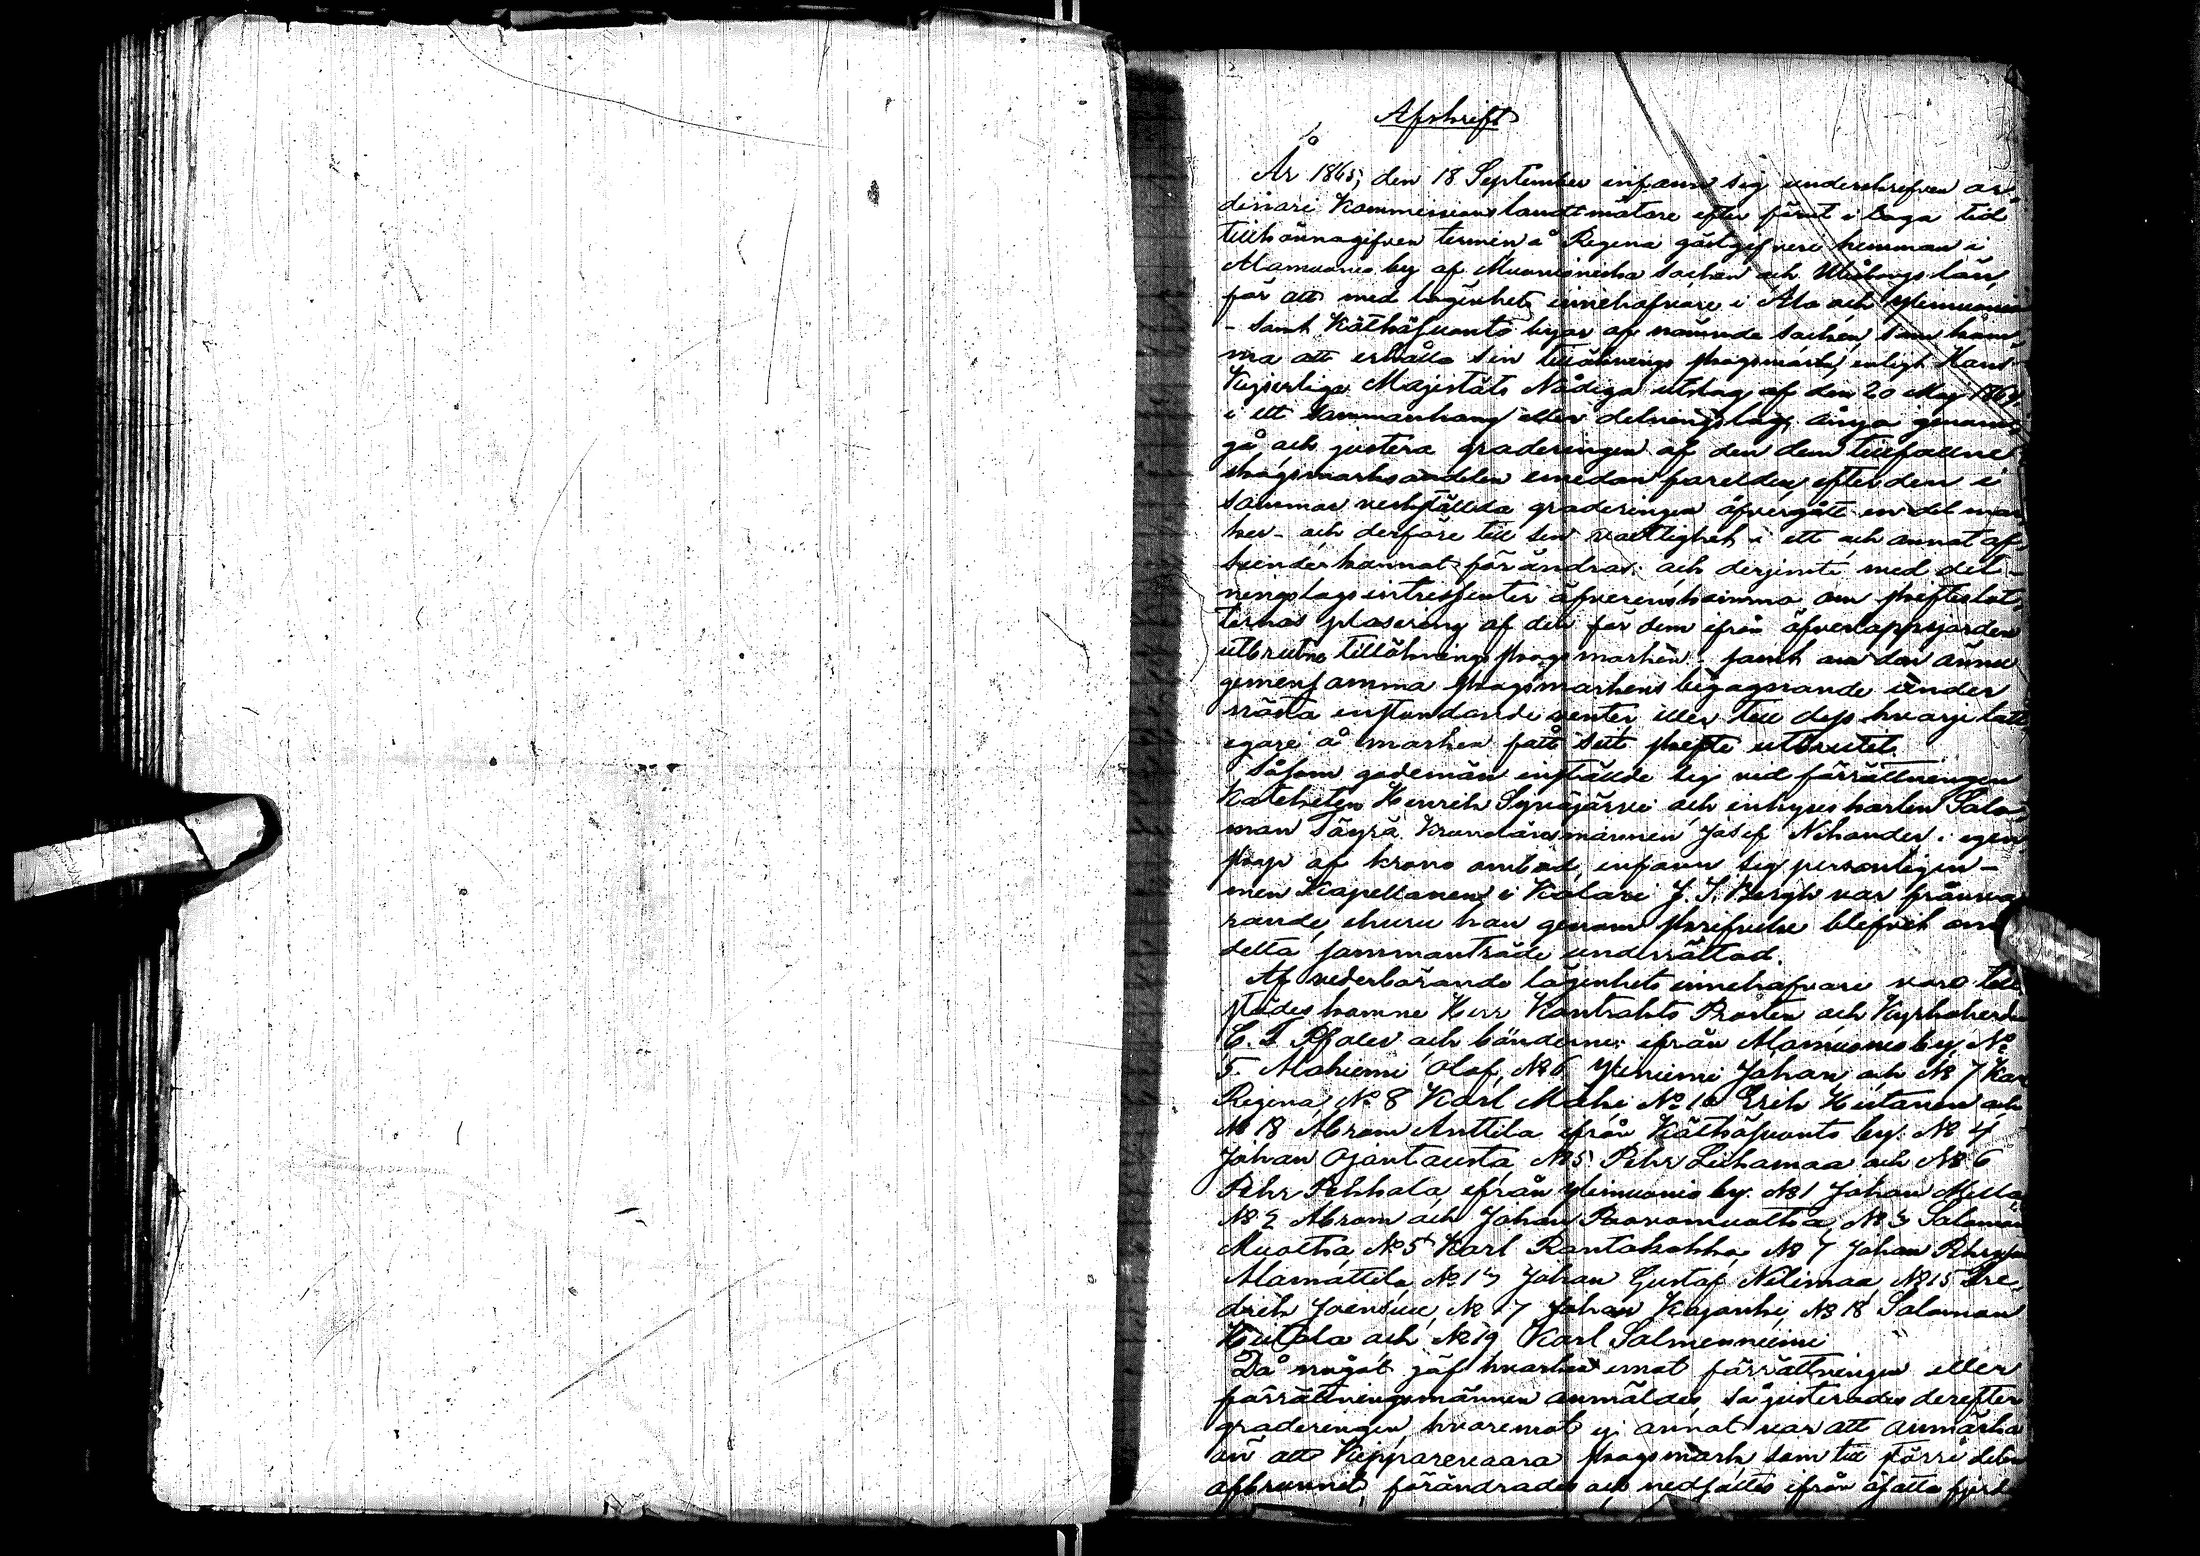 Afskrift
År 1865, den 18 September infann sig underskrefven or-
dinarie Kommissionslandtmätare efter förut i laga tid
tillkännagifven termin å Regina gästgifveri hemman i
Alamuonio by af Muonioniska socken och Uleåborgs län,
för att med lägenhets innehafvare i Ala och Ylimuonio
- samt Kätkäsuonto byar af nämnde socken, som kom-
ma att erhålla sin tillöknings skogsmark, enligt Hans
Kejserliga Majestäts Nådiga utslag af den 20 Maj 1864,
i ett sammanhang eller delningslag, ånyo genom-
gå och justera graderingen af den dem tillfallne
skogsmarksandelen emedan skogselden efter den i
sommar verkställda graderingen öfvergått en del mar-
ker - och derföre till sin växtlighet i ett och annat af-
seende kunnat förändras; och derjemte med del-
ningslags intressenter öfverenskomma om skifteslot-
ternas plasering af den för dem ifrån öfverloppsjorden
utbrutne tillöknings skogsmarken - samt om den ännu
gemensamma skogsmarkens begagnande under
nästa instundande vinter, eller till dess hvarje lott-
egare å marken fått sitt skifte utbrutet.
Såsom godemän inställde sig vid förrättningen
Katcheten Henrik Syväjärvi och inhyses karlen Salo-
mon Täyrä. Kronolänsmannen Josef Nikander i egen-
skap af krono ombud infann sig personligen -
men Kapellanen i Kolari J. J. Bergh var frånva-
rande, ehuru han genom skrifvelse blifvit om
detta sammanträde underrättad.
Af vederbörande lägenhets innehafvare voro till-
städeskomne Herr Kontrakts Prosten och Kyrkoherden
C. J. Pfaler och bönderne: ifrån Alamuonio by, No
5. Alaniemi Olof, No 6 Yliniemi Johan, och No 7 Karl
Regina, No 8 Karl Mäki No 10 Erik Hietanen och
No 18 Abram Anttila ifrån Kätkäsuonto by: No 4
Johan Ojantausta, No 5 Pehr Liikamaa och No 6
Pehr Pekkala, ifrån Ylimuonio by: No 1 Johan Mella,
No 2 Abram och Johan Rovamuotka, No 3 Salomon
Muotka, No 5 Karl Rantakokko, No 7 Johan Pehrsson
Alamattila, No 13 Johan Gustaf Niilimaa, No 15 Fre-
drik Joensuu, No 17 Johan Kajanki, No 18 Salomon
Hietala och No 19 Karl Salmenniemi
Då något jäf hvarken emot förrättningen eller
förrättningsmännen anmäldes, så justerades derefter
graderingen, hvaremot ej annat var att anmärka
än att Kippareuaara skogsmark, som till större delen
afbrunnit, förändrades och nedsattes ifrån åtatta fjerl